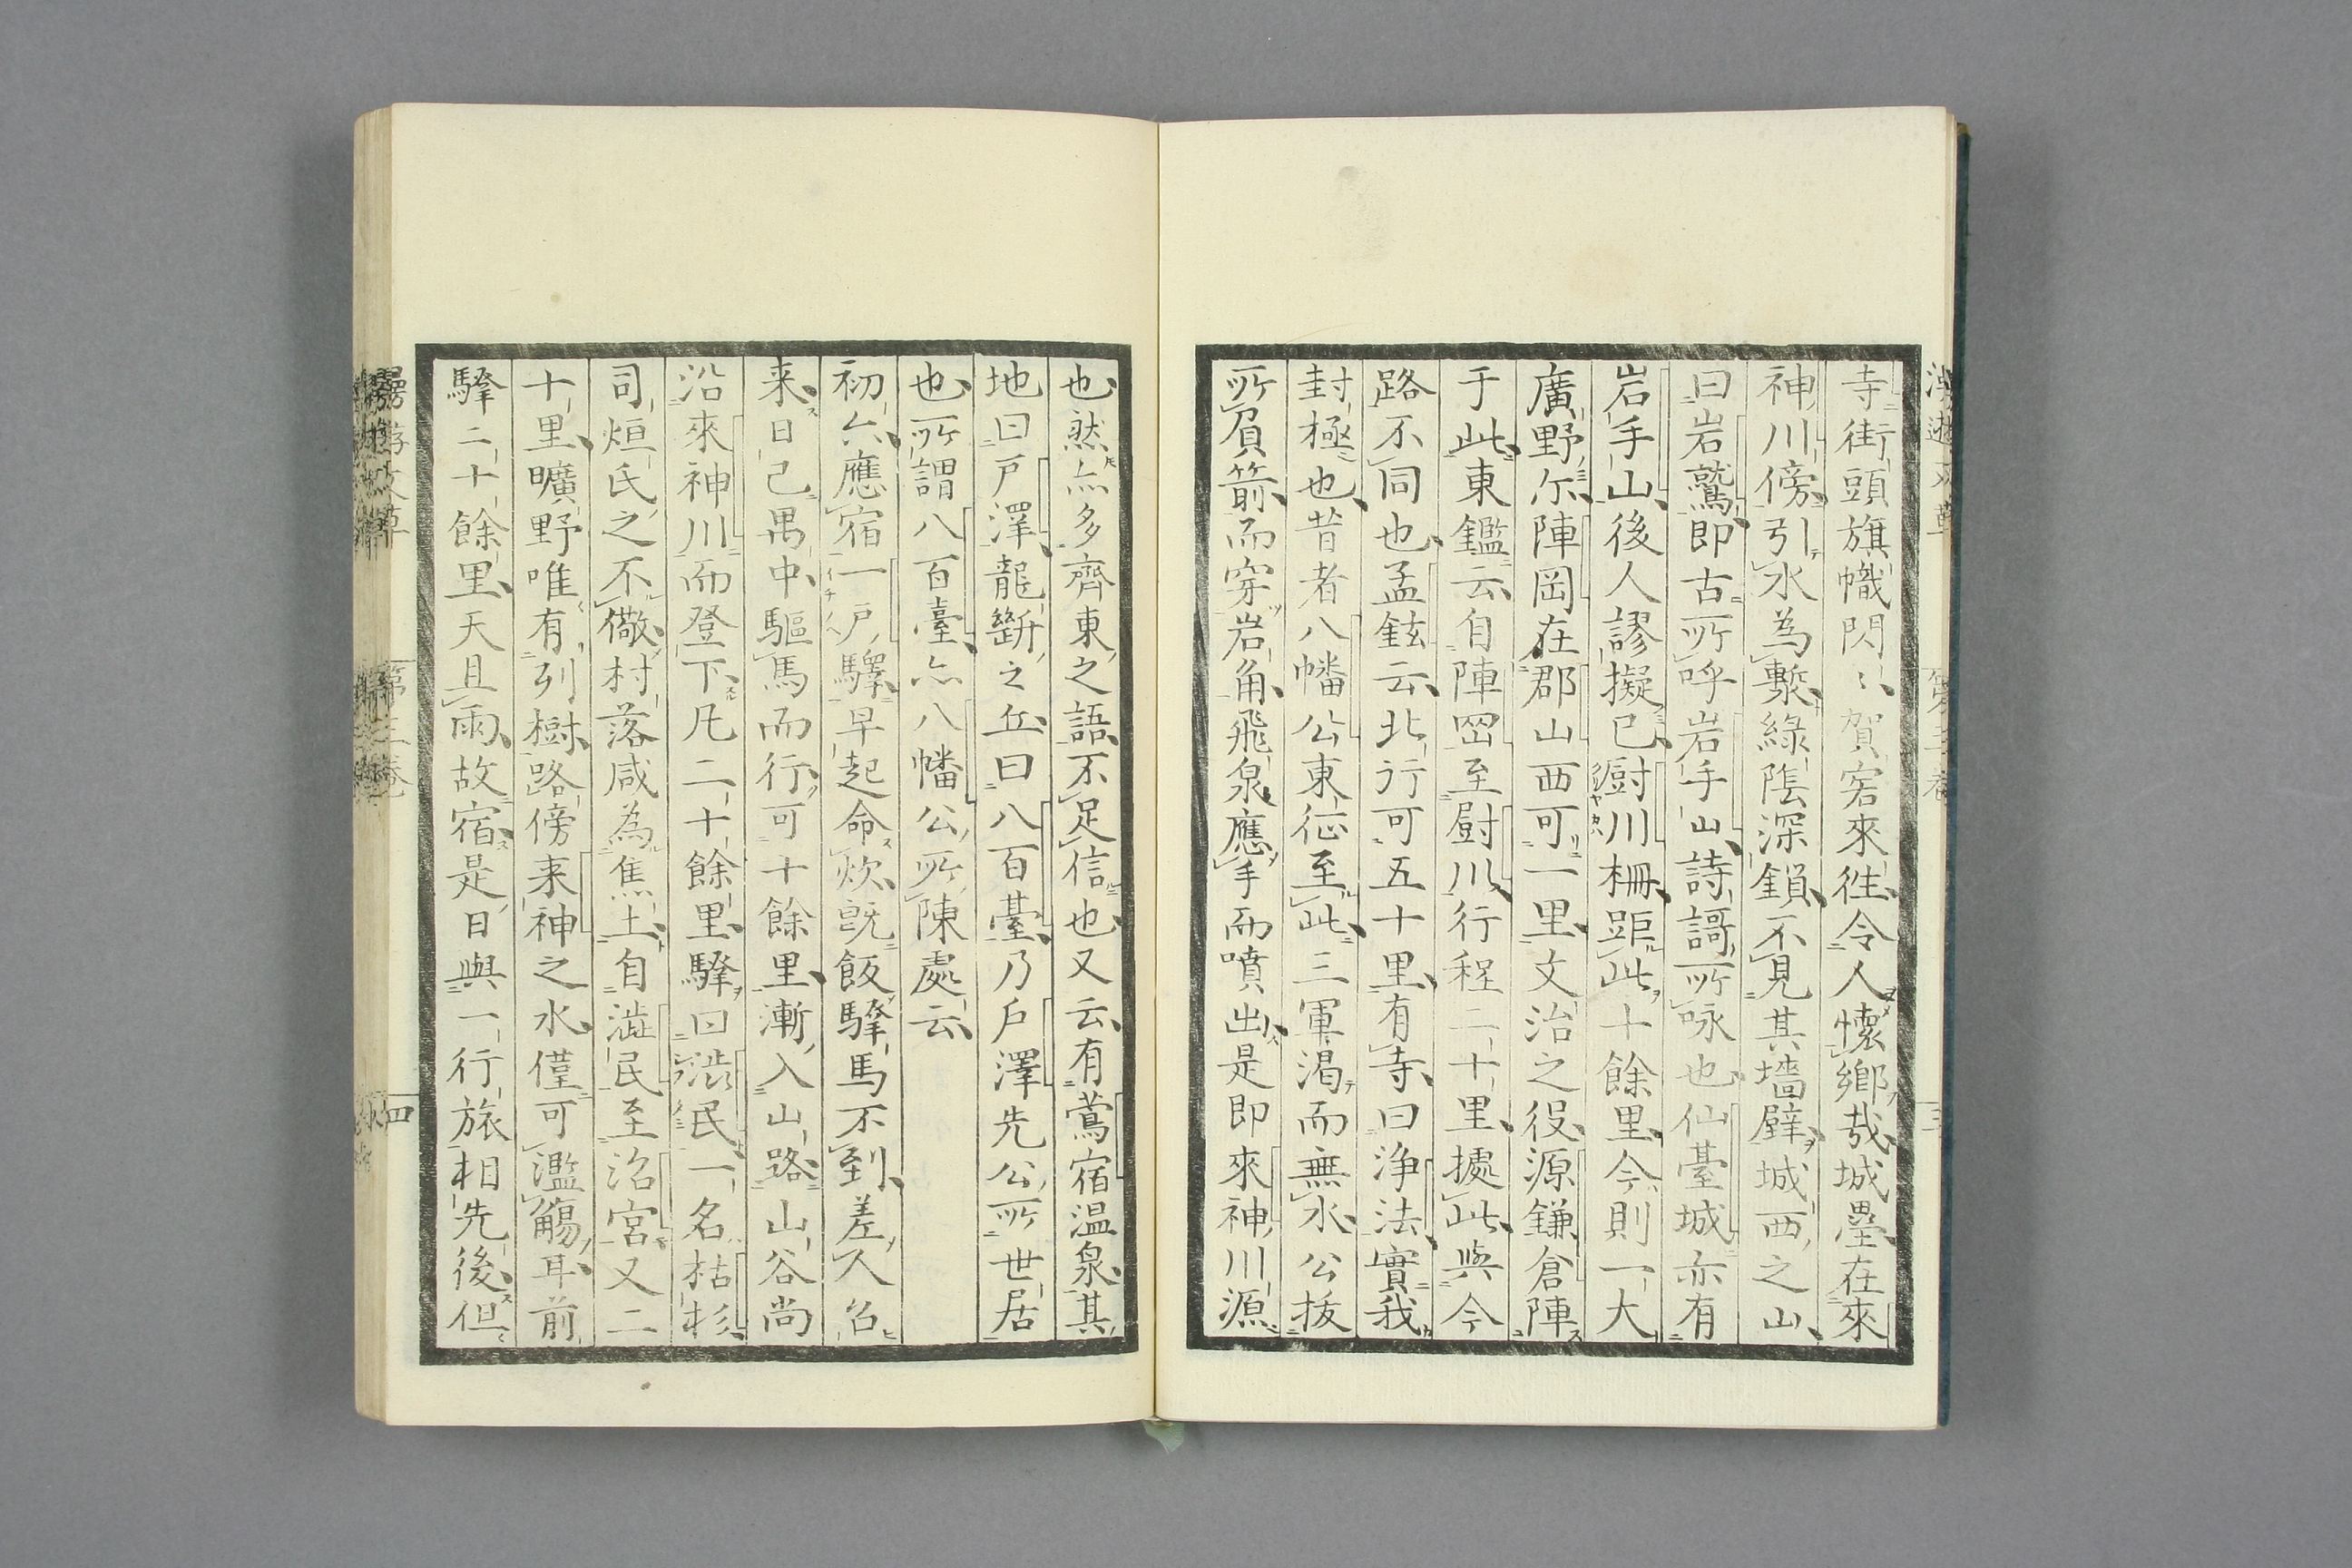 寺街頭旗幟閃〻賀客來往令人懷鄉哉城壘在來
神川傍引水為塹綠陰深鎖不見其墻壁城西之山
曰岩鷲即古所呼岩手山詩謌所咏也仙臺城亦有
岩手山後人謬擬已厨川柵距此十余里今則一大
廣野尓陣岡在郡山西可一里文治之役源鎌倉陣
于此東鑑云自陣罡至厨川行程二十里據此與今
路不同也孟鉉云北行可五十里有寺曰浄法實我
封極也昔者八幡公東征至此三軍渴而無水公拔
所負箭而穿岩角飛泉應手而噴出是即來神川源
也然亦多齊東之語不足信也又云有鶯宿温泉其
地曰戸澤龍斷之丘曰八百臺乃戸澤先公所世居
也所謂八百臺亦八幡公所陳處云
初六應宿一戸驛早起命炊既飯驛馬不到差人召
来日已禺中驅馬而行可十餘里漸入山路山谷尚
沿來神川而登下凡二十餘里驛曰澁民一名枯杉
司烜氏之不儆村落咸為焦土自澁民至沼宮又二
十里曠野唯有列樹路傍来神之水僅可濫觴耳前
驛二十餘里天且雨故宿是日與一行旅相先後但
第三卷
四